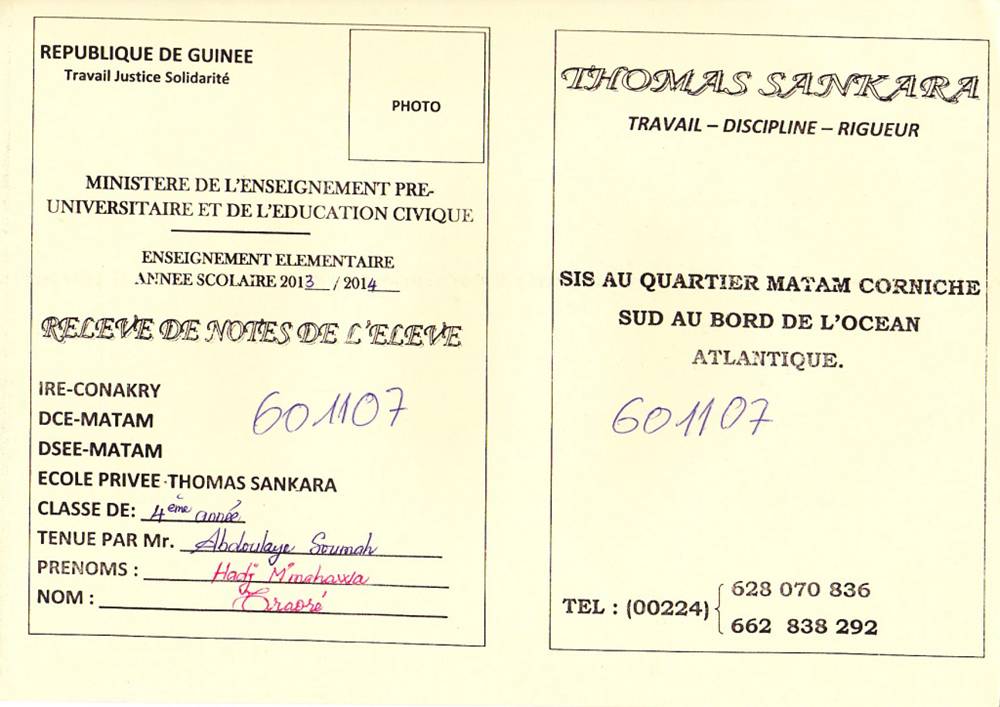 REPUBLIQUE DE GUINEE
Travail Justice Solidarité
PHOTO
MINISTERE DE L'ENSEIGNEMENT PRE-
UNIVERSITAIRE ET DE L'EDUCATION CIVIQUE
ENSEIGNEMENT ELEMENTAIRE
ANNEE SCOLAIRE 2013 / 2014
RELEVE DE NOTES DE L'ELEVE
IRE-CONAKRY
DCE-MATAM
601107
DSEE-MATAM
ECOLE PRIVEE THOMAS SANKARA
CLASSE DE: 4ème année
TENUE PAR Mr. Abdoulaye Soumah
PRENOMS : Hadj M'mahawa
NOM : Traoré
THOMAS SANKARA
TRAVAIL – DISCIPLINE – RIGUEUR
SIS AU QUARTIER MATAM CORNICHE
SUD AU BORD DE L'OCEAN
ATLANTIQUE.
601107
TEL : (00224) 628 070 836
662 838 292